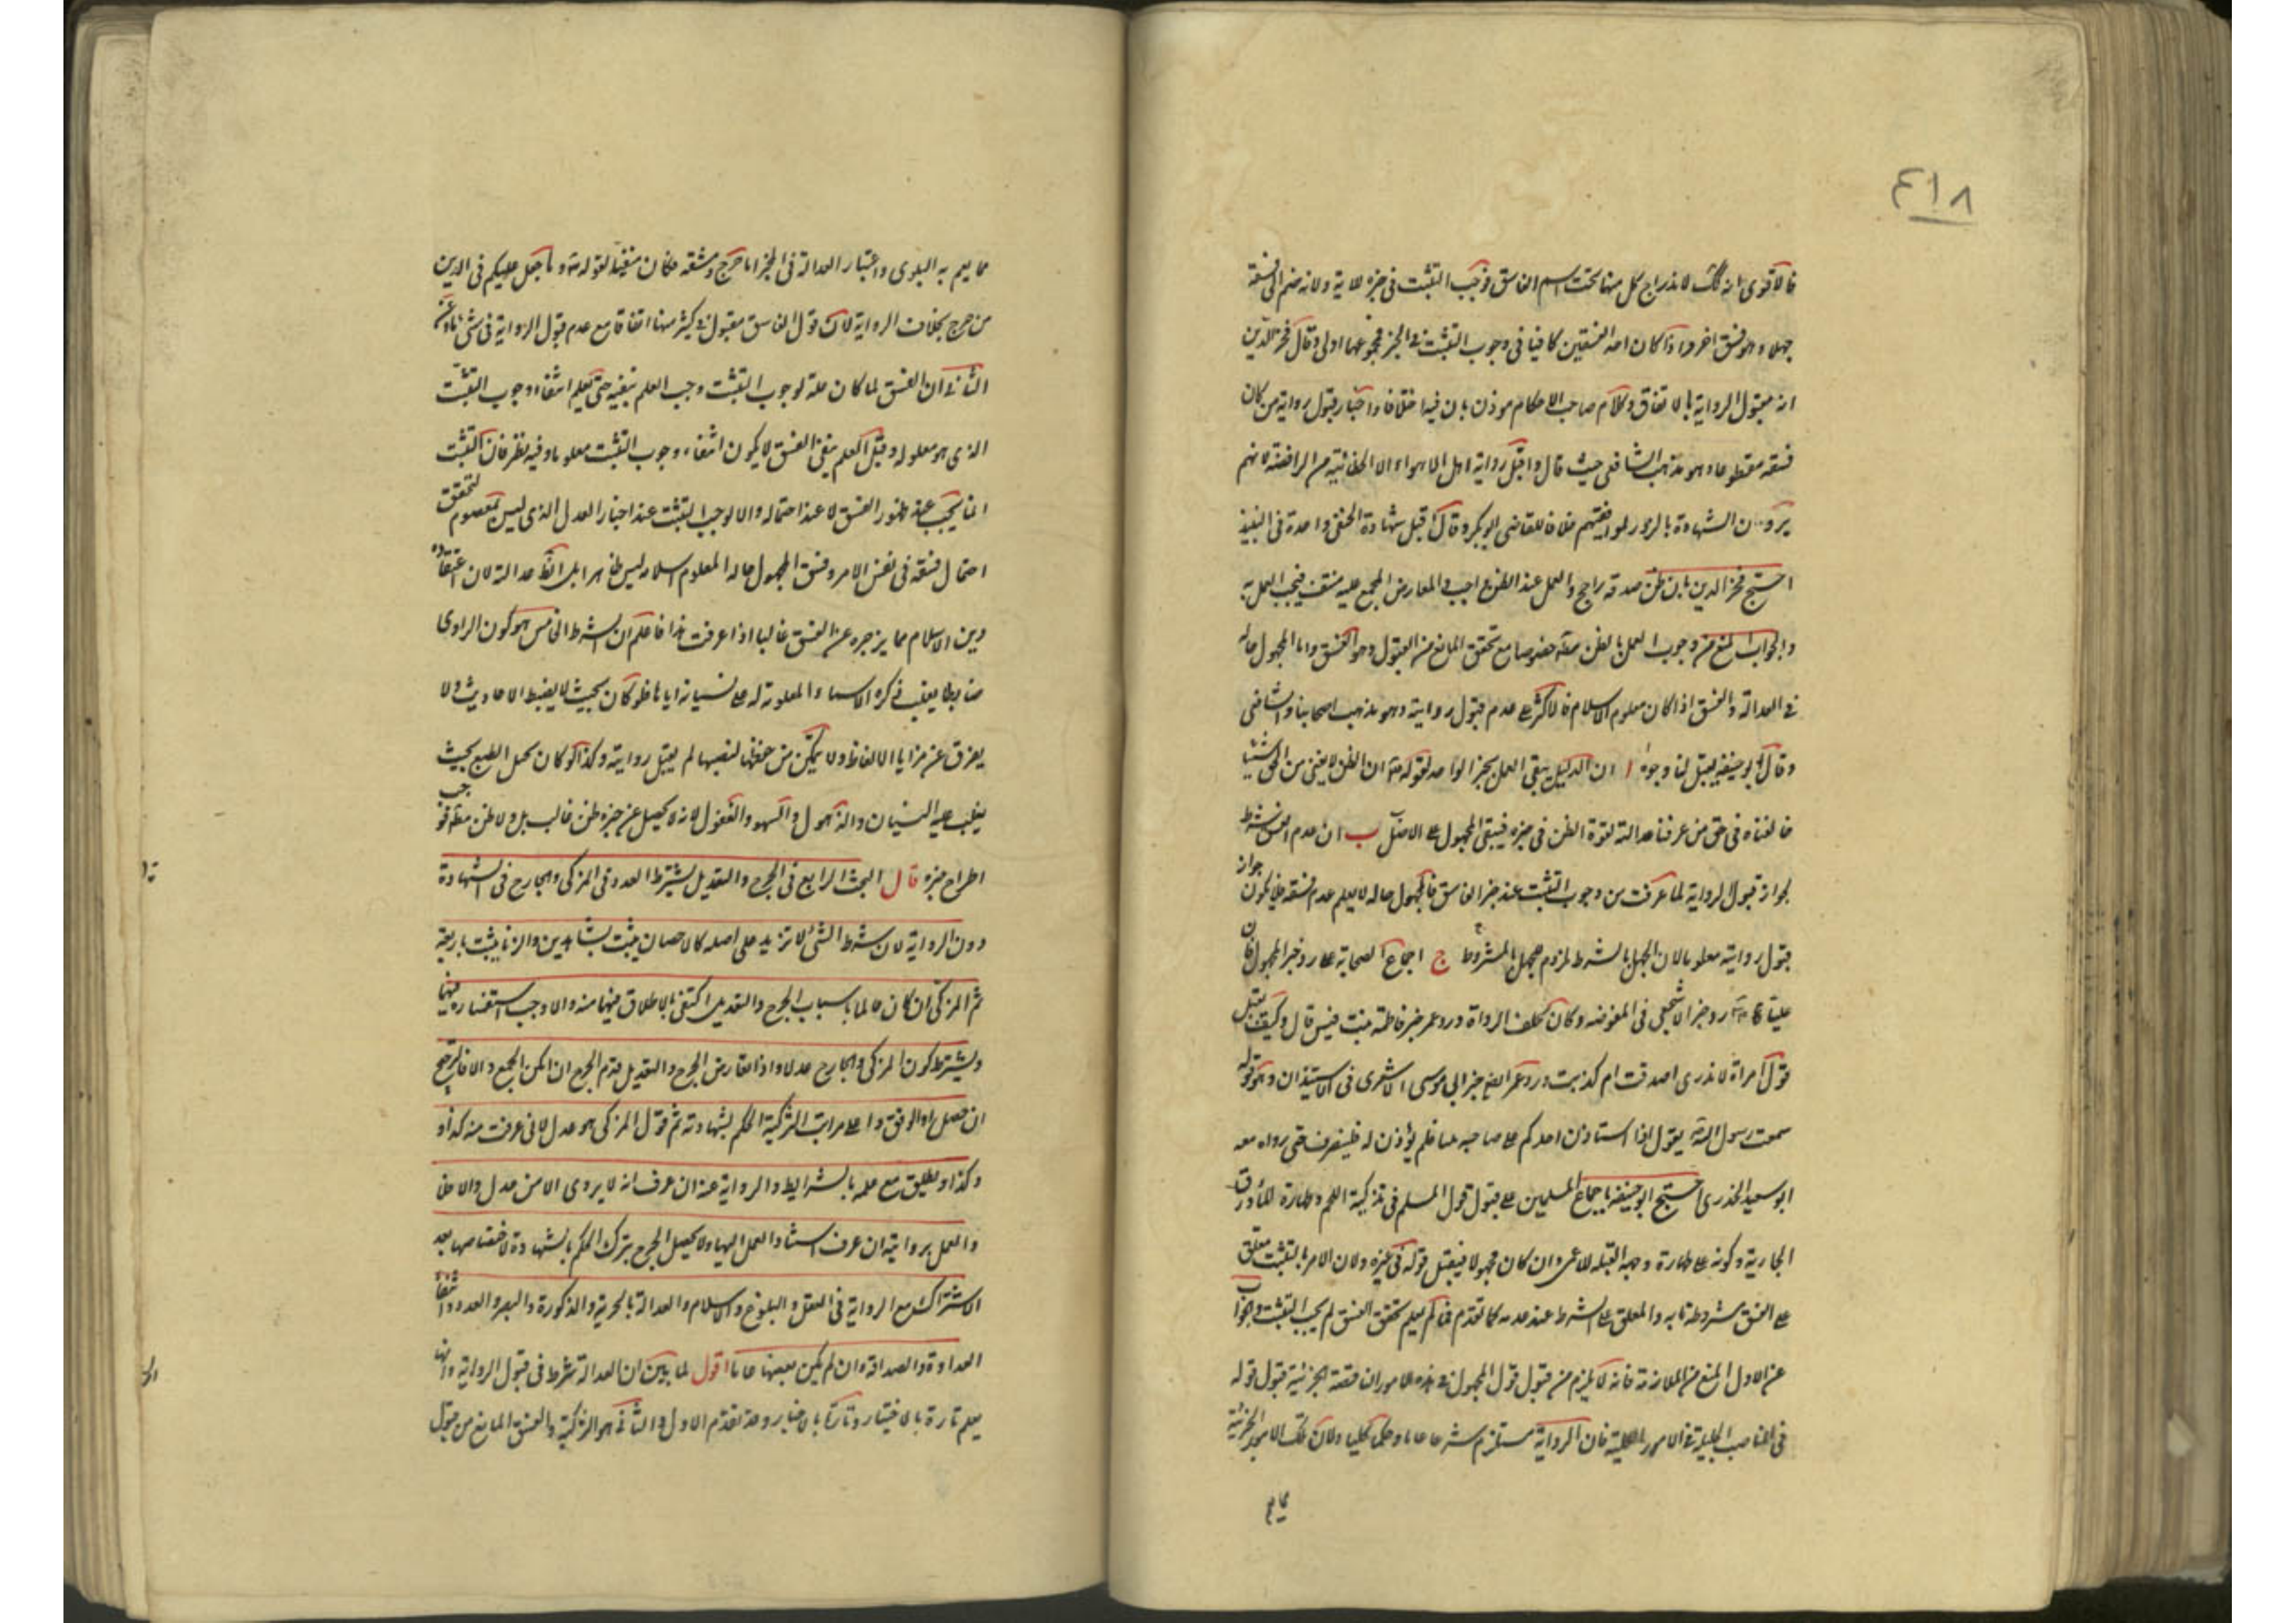 ٤١٨
فالاقوى انه كذلك لاندراج كل منهما تحت اسم الفاسق فوجب التثبت فى خبره للاية ولانه ضم الى فسقه
جهله وهو فسق اخر واذا كان احد الفسقين كافيا فى وجوب التثبت فى الخبر فمجموعهما اولى وقال فخر الدين
انه مقبول الرواية بالاتفاق وكلام صاحب الاحكام موذن بان فيه اختلافا واختار قبول رواية من كان
فسقه مقطوعا وهو مذهب الشافعى حيث قال واقبل رواية اهل الاهواء الا الخطابية من الرافضة لانهم
يرون الشهادة بالزور لموافقيهم خلافا للقاضى ابو بكر وقال اقبل شهادة الحنفى واحده فى النبيذ
احتج فخر الدين بان ظن صدقه راجح والعمل عند الظن واجب والمعارض المجمع عليه منتف فيجب العمل به
والجواب المنع من وجوب العمل بالظن مطلقا خصوصا مع تحقق المانع من القبول وهو الفسق واما المجهول حاله
فى العدالة والفسق اذا كان معلوم الاسلام فالاكثر على عدم قبول روايته وهو مذهب اصحابنا والشافعى
وقال ابو حنيفة يقبل لنا وجوه ا ان الدليل ينفى العمل بخبر الواحد لقوله تعالى ان الظن لا يغنى من الحق شيئا
خالفناه فى حق من عرفنا عدالته لقوة الظن فى خبره فيبقى المجهول على الاصل ب ان عدم الفسق شرط
لجواز قبول الرواية لما عرفت من وجوب التثبت عند خبر الفاسق فالمجهول حاله لا يعلم عدم فسقه فلا يكون جواز
قبول روايته معلوما لان الجهل بالشرط ملزوم للجهل بالمشروط ج اجماع الصحابة على رد خبر المجهول فان
عليا عليه السلام رد خبر الاشجعى فى المفوضة وكان يحلف الرواة ورد عمر خبر فاطمة بنت قيس قال وكيف يقبل
قول امراة لا ندرى اصدقت ام كذبت ورد عمر ايضا خبر ابى موسى الاشعرى فى الاستيذان وهو قوله
سمعت رسول الله يقول اذا استاذن احدكم على صاحبه ثلثا فلم يؤذن له فلينصرف حتى رواه معه
ابو سعيد الخدرى احتج ابو حنيفة باجماع المسلمين على قبول قول المسلم فى تذكية اللحم وطهارة الماء ورق
الجارية وكونه على طهارة وجهة القبلة للاعمى وان كان مجهولا فيقبل قوله فى غيره ولان الامر بالتثبت معلق
على الفسق مشروط به والمعلق على الشرط عدم عند عدمه كما تقدم فما لم يعلم تحقق الفسق لم يجب التثبت والجواب
عن الاول المنع من الملازمة فانه لا يلزم من قبول قول المجهول فى هذه الامور الناقصة الجزئية قبول قوله
فى المناصب الجليلة فى الامور الكلية فان الرواية تستلزم شرعا عاما وحكما كليا ولان تلك الامور الجزئية
مما يعم
مما يعم به البلوى واعتبار العدالة فى المخبر بها حرج ومشقة فكان منفيا لقوله تعالى وما جعل عليكم فى الدين
من حرج بخلاف الرواية لان قول الفاسق مقبول فى كثير منها اتفاقا مع عدم قبول الرواية فى شئ
الثانى ان الفسق لما كان علة لوجوب التثبت وجب العلم بنفيه حتى يعلم انتفاء وجوب التثبت
الذى هو معلوله وقبل العلم بنفى الفسق لا يكون انتفاء وجوب التثبت معلوما وفيه نظر فان التثبت
انما يجب عند ظهور الفسق لا عند احتماله والا لوجب التثبت عند اخبار العدل الذى ليس بمعصوم لتحقق
احتمال فسقه فى نفس الامر وفسق المجهول حاله المعلوم اسلامه ليس ظاهرا بل الظاهر عدالته لان اعتقاده
دين الاسلام مما يزجره عن الفسق غالبا اذا عرفت هذا فاعلم ان الشرط الخامس هو كون الراوى
ضابطا يغلب ذكره الاشياء المعلومة له على نسيانه اياها فلو كان بحيث لا يضبط الاحاديث ولا
يفرق عن مزايا الالفاظ ولا يتمكن من حفظها لنفسها لم يقبل روايته وكذا لو كان مختل الطبع بحيث
يغلب عليه النسيان والذهول والسهو والغفول لانه لا يحصل عن خبره ظن غالب بل ولا ظن مطلقا فوجب
اطراح خبره قال البحث الرابع فى الجرح والتعديل يشترط العدد فى المزكى والجارح فى الشهادة
دون الرواية لان شرط الشئ لا تزيد على اصله كالاحصان يثبت بشاهدين والزنا يثبت باربعة
ثم المزكى ان كان عالما باسباب الجرح والتعديل اكتفى بالاطلاق فيهما منه والا وجب استفساره فيهما
ويشترط كون المزكى والجارح عدلا واذا تعارض الجرح والتعديل قدم الجرح ان امكن الجمع والا فالترجيح
ان حصل او الوقف واعلى مراتب التزكية الحكم بشهادته ثم قول المزكى هو عدل لانى عرفت منه كذا و
وكذا ويطلق مع علمه بالشرايط والرواية عنه ان عرف انه لا يروى الا من عدل والا فلا
والعمل بروايته ان عرف استناد العمل اليها ولا يحصل الجرح بترك الحكم بالشهادة لاختصاصها بعد
الاشتراك مع الرواية فى العقل والبلوغ والاسلام والعدالة بالحرية والذكورة والبصر والعدد وانتفاء
العداوة والصداقة وان لم يكن بعضها عاما اقول لما بين ان العدالة شرط فى قبول الرواية وانها
يعلم تارة بالاختبار وتارة بالاخبار وقد تقدم الاول والثانى هو التزكية والفسق المانع من قبول